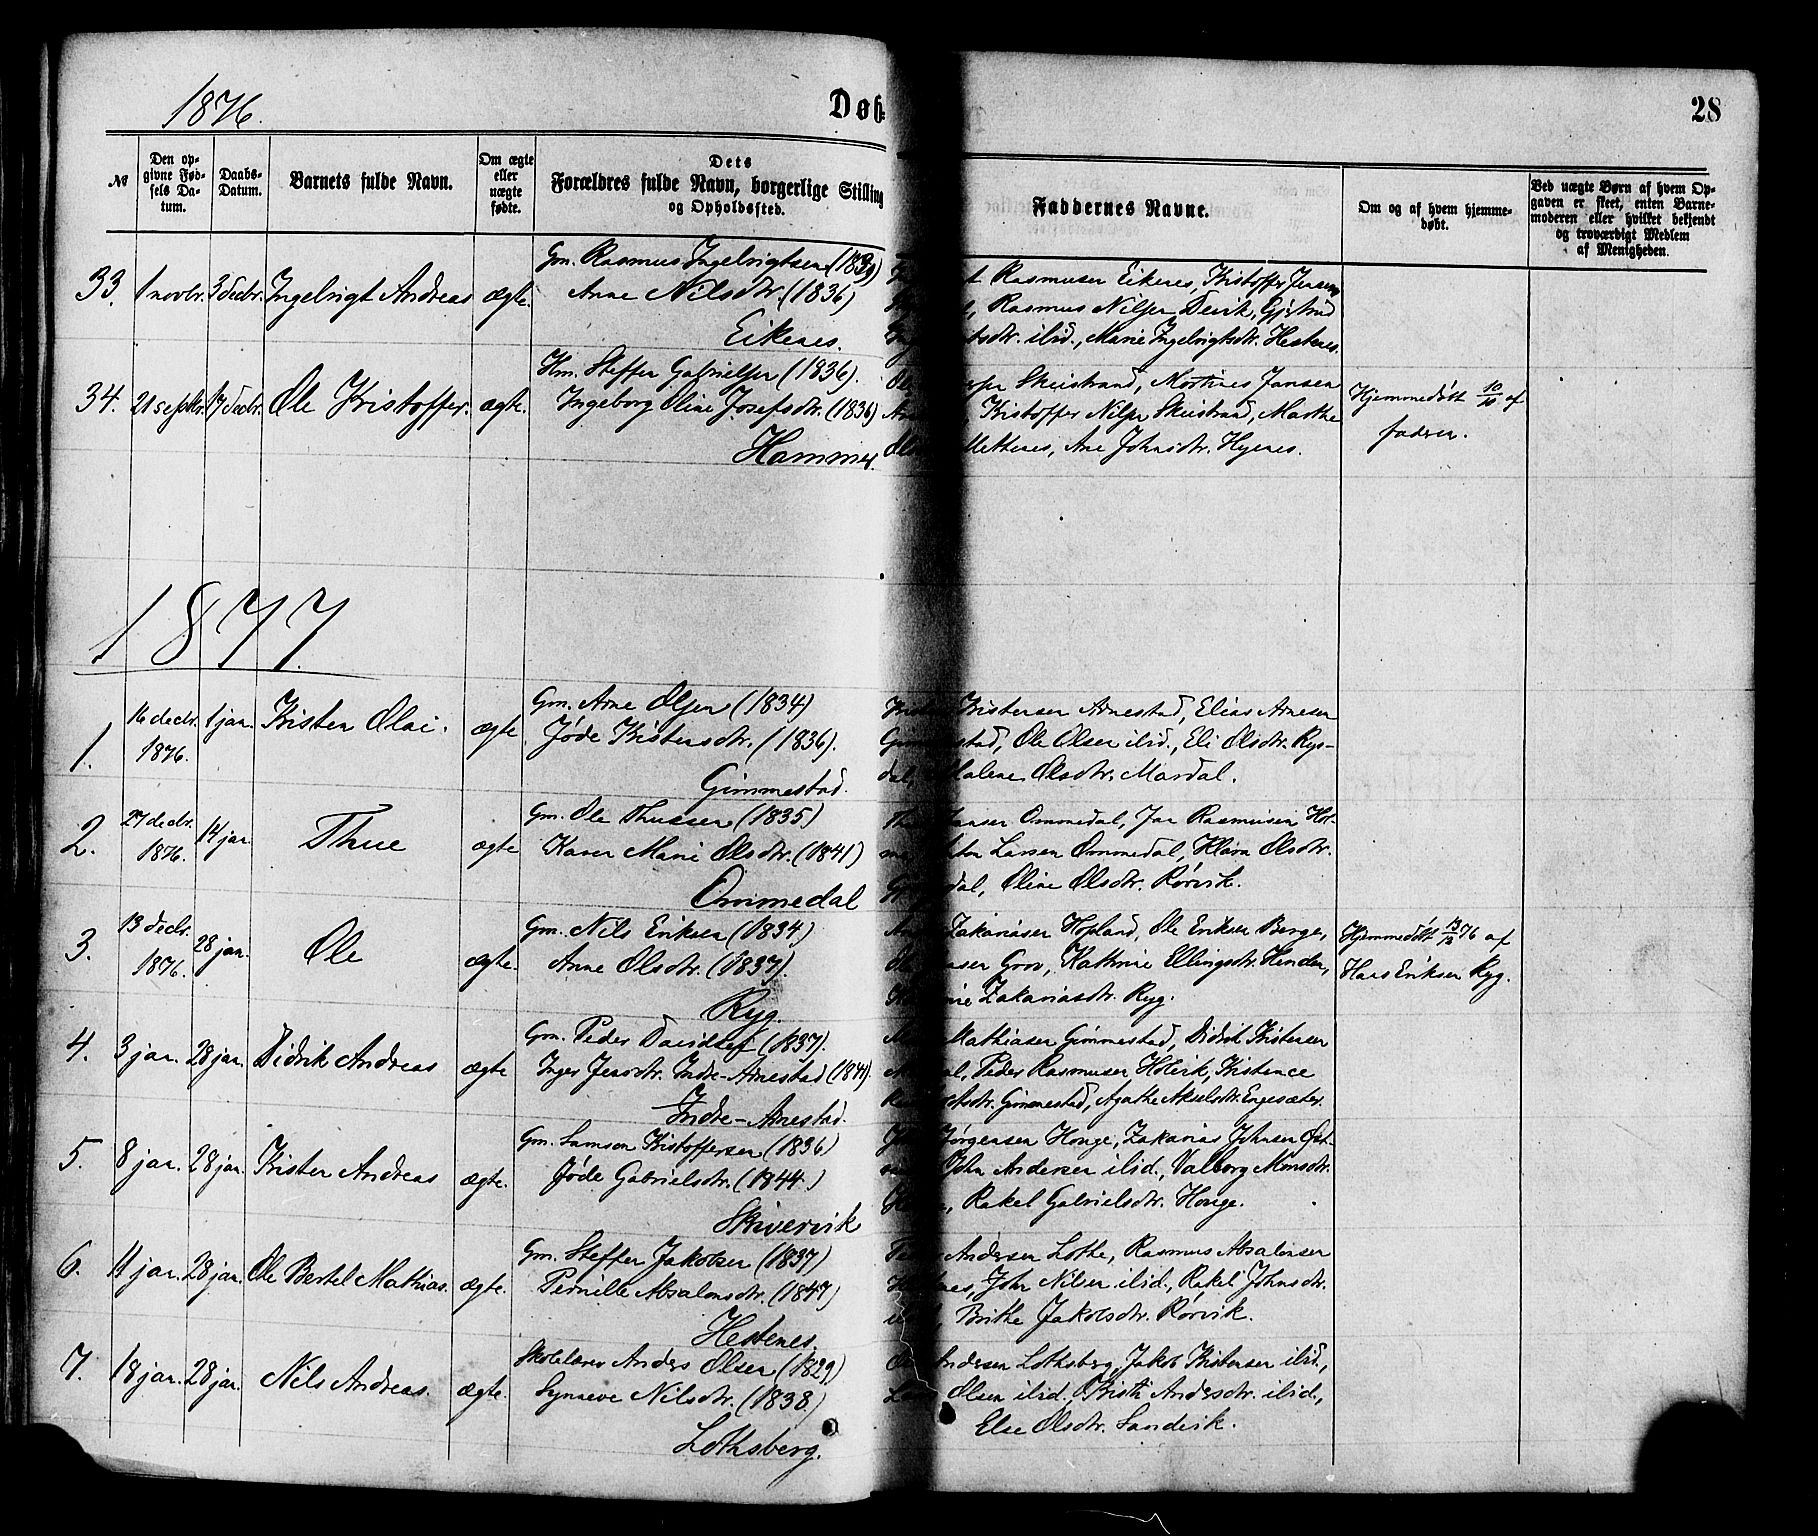 1876.
Døb-
28
№
Den op-
givne Fød-
sels Da-
tum.
Daabs-
Datum.
Barnets fulde Navn.
Om ægte
eller
uægte
fødte.
Dets
Forældres fulde Navn, borgerlige Stilling
og Opholdssted.
Faddernes Navne.
Om og af hvem hjemme-
døbt.
Ved uægte Børn af hvem Op-
gaven er skeet, enten Barne-
moderen eller hvilket bekjendt
og troværdigt Medlem
af Menigheden.
33. 1 novbr. 3 decbr. Ingebrigt Andreas ægte.
Gm. Rasmus Ingebrigtsen (1839)
Anne Nilsdtr. (1836)
Eikenes.
Rasmusen Eikenes, Kristoffer Jensen
Rasmus Nilsen Devik, Gjertrud
ilid., Marie Ingebrigtsdtr. Hestenes.
34. 21 septbr. 17 decbr. Ole Kristoffer. ægte.
Hm. Steffen Gabrielsen (1836).
Ingeborg Oline Josefsdtr. (1836)
Hammer.
Skeistrand, Mortines Jansen
Kristoffer Nilsen Skeistrand, Marthe
Mettenes, Ane Johnsdtr. Hyenes.
Hjemmedøbt 10/10 af
faderen.
1877.
1. 16 decbr. 1876. 1 jan. Kristen Olai. ægte
Gm. Arne Olsen (1834)
Jøde Kristensdtr. (1836).
Gimmestad.
Kristensen Arnestad, Elias Arnesen
Gimmestad, Ole Olsen ilid., Eli Olsdtr. Rys-
dal, Malene Olsdtr. Mardal.
2. 27 decbr. 1876. 14 jan. Thue ægte
Gm. Ole Thuesen (1835)
Karen Marie Olsdtr. (1841)
Ommedal
Hansen Ommedal, Jan Rasmusen Hol-
Larsen Ommedal, Klara Olsdtr.
Oline Olsdtr. Rørvik.
3. 13 decbr. 1876. 28 jan. Ole ægte.
Gm. Nils Eriksen (1834)
Anne Olsdtr. (1837).
Ryg.
Zakariasen Hopland, Ole Eriksen Berge,
Grov, Kathrine Ellingsdtr. Henden,
Zakariasdtr. Ryg.
Hjemmedøbt 13/12 76 af
Hans Eriksen Ryg.
4. 3 jan. 28 jan. Didrik Andreas ægte
Gm. Peder Davidsen (1837).
Inger Jensdtr. Indre-Arnestad (1841).
Indre-Arnestad.
Mathiasen Gimmestad, Didrik Kristensen
Peder Rasmusen Holvik, Kristence
Gimmestad, Agathe Akselsdtr. Engesæter.
5. 8 jan. 28 jan. Kristen Andreas ægte.
Gm. Samson Kristoffersen (1836)
Jøde Gabrielsdtr. (1844)
Skivervik
Jørgensen Honge, Zakarias Johnsen Øst-
John Andersen ilid., Valborg Monsdtr.
Rakel Gabrielsdtr. Honge.
6. 11 jan. 28 jan. Ole Bertel Mathias. ægte.
Gm. Steffen Jakobsen (1837)
Pernille Absalonsdtr. (1847)
Hestenes.
Andersen Lothe, Rasmus Absalonsen
John Nilsen ilid., Rakel Johnsdtr.
Brithe Jakobsdtr. Rørvik.
7. 18 jan. 28 jan. Nils Andreas. ægte.
Skolelærer Anders Olsen (1829)
Synneve Nilsdtr. (1838)
Lothsberg.
Andersen Lothsberg, Jakob Kristensen ilid.,
Olsen ilid., Kristi Andersdtr. ilid.,
Else Olsdtr. Sandvik.